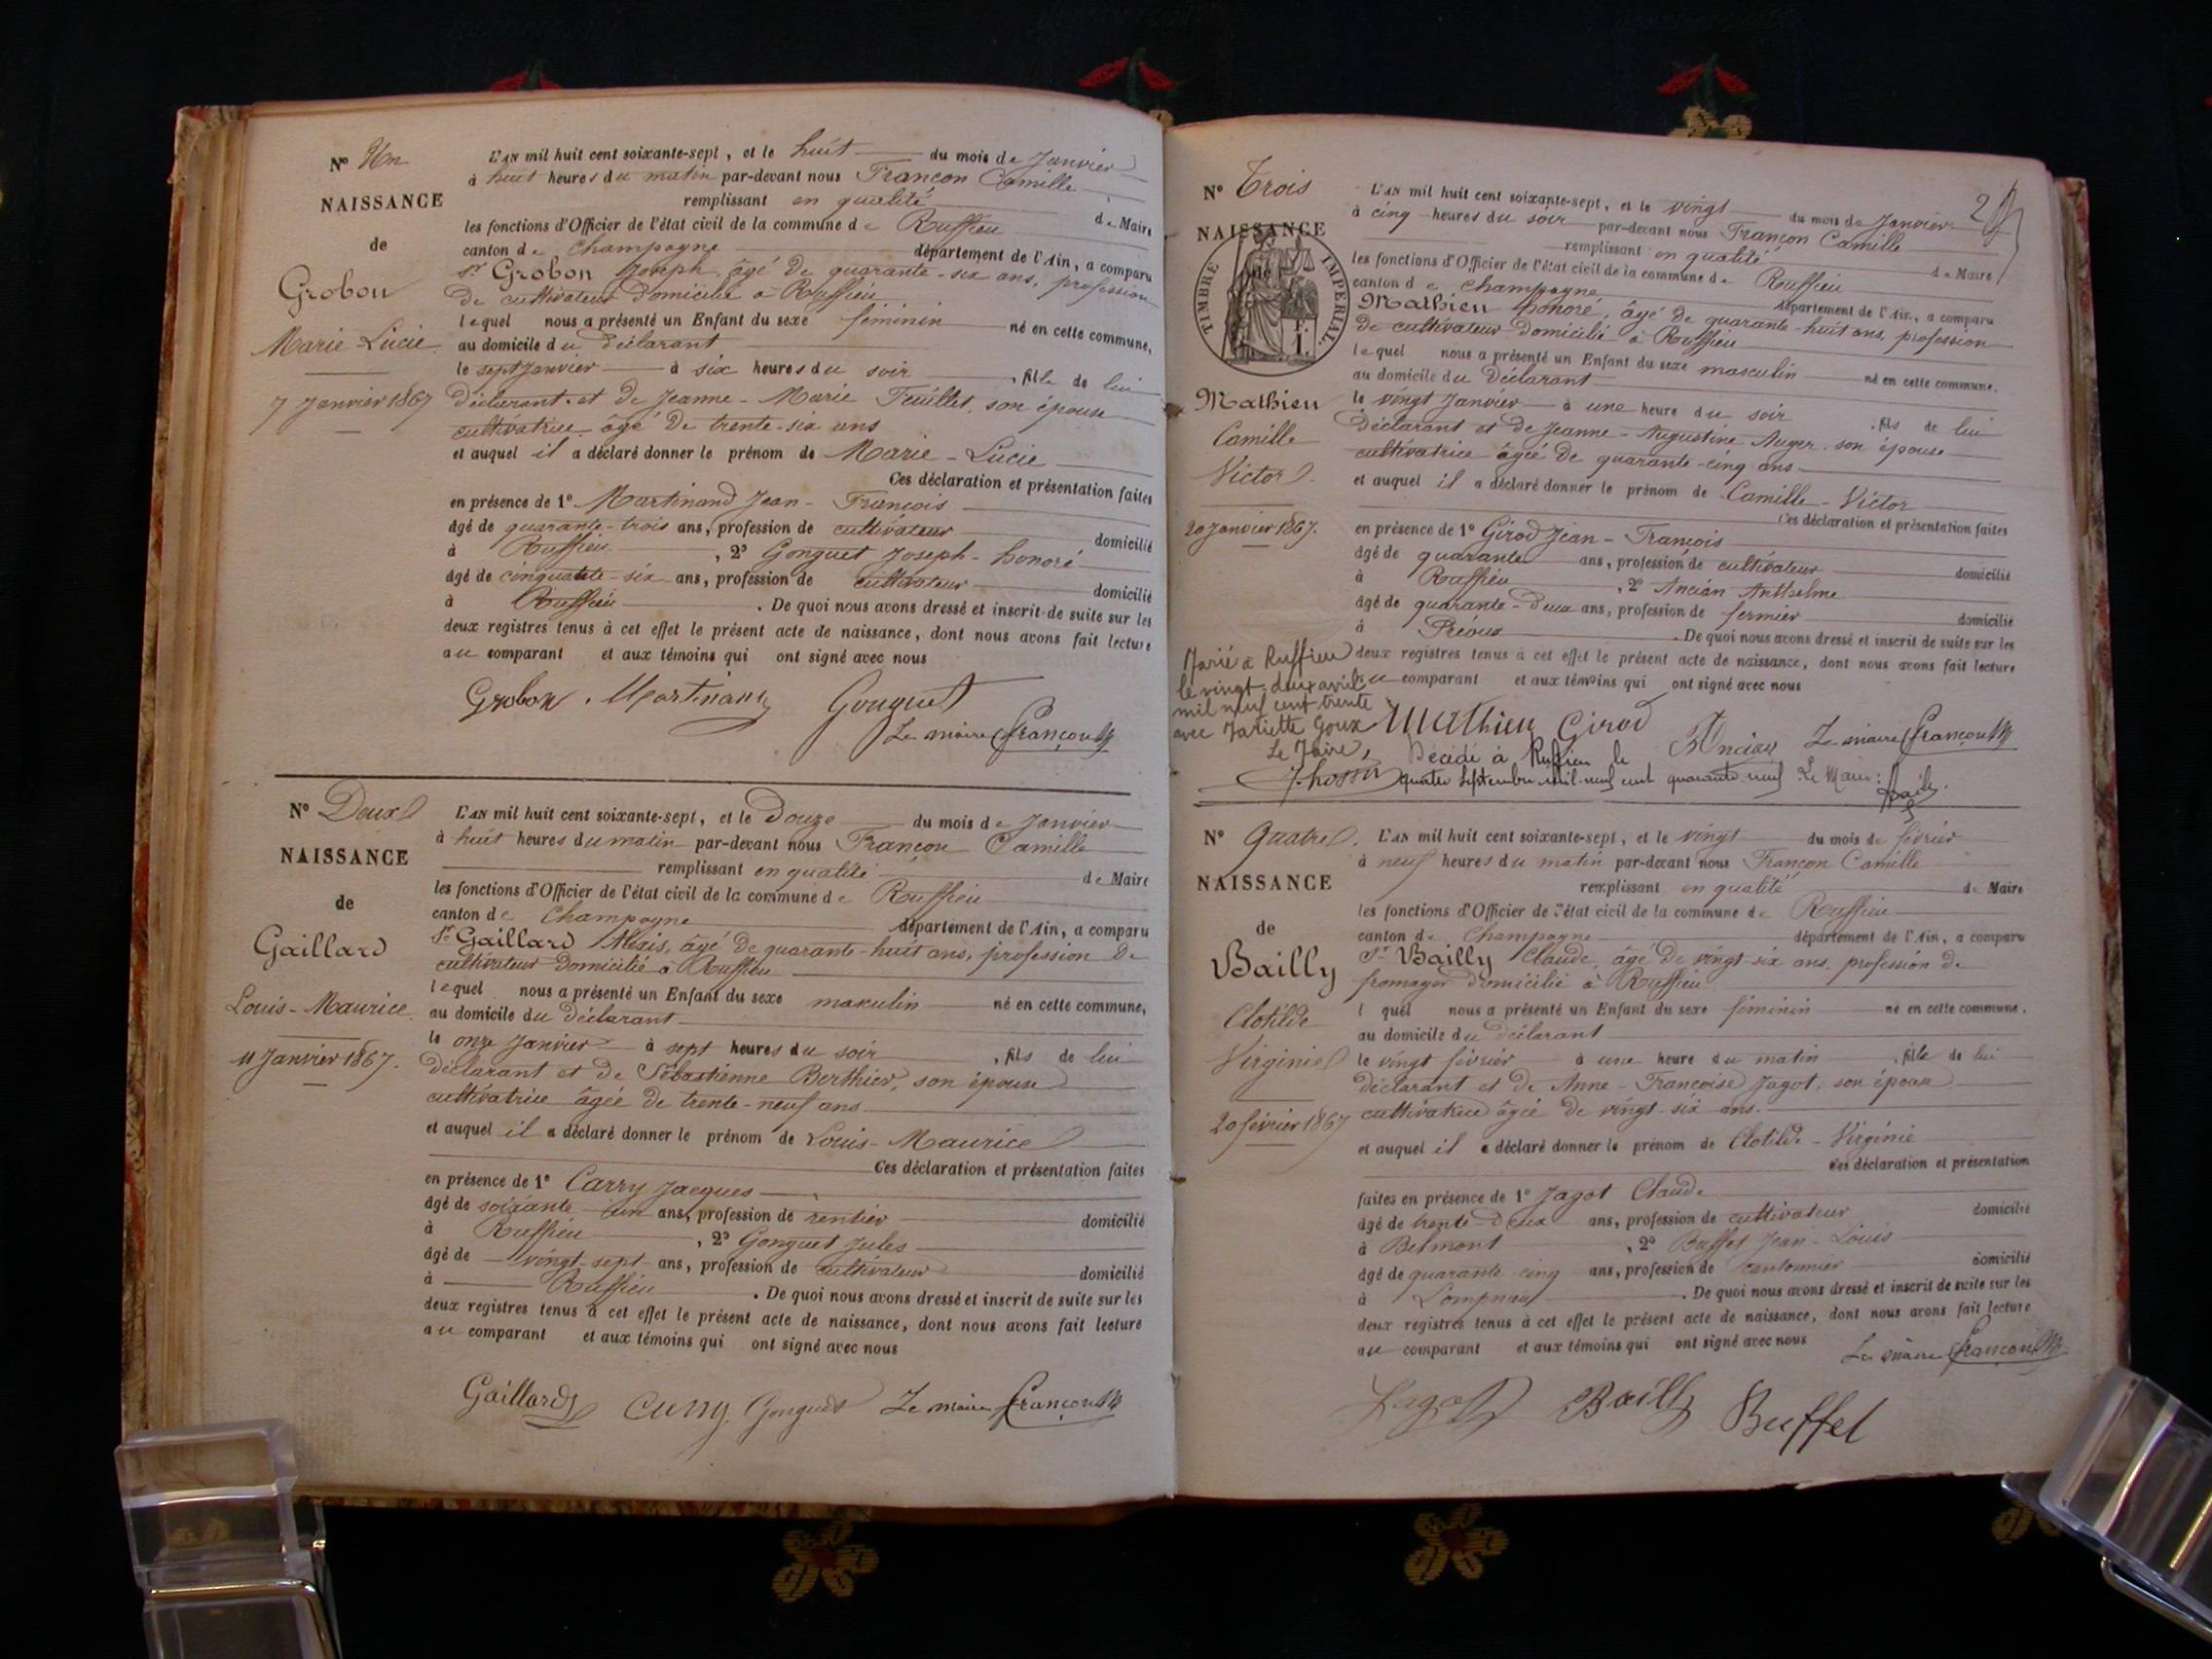 N° Un
NAISSANCE
de
Grobon
Marie Lucie
7 Janvier 1867
L'AN mil huit cent soixante-sept, et le huit du mois de Janvier
à huit heures du matin par-devant nous Françon Camille
remplissant en qualité de Maire
les fonctions d'Officier de l'état civil de la commune de Ruffieu
canton de Champagne département de l'Ain, a comparu
Sr Grobon Joseph, âgé de quarante-six ans, profession
de cultivateur domicilié à Ruffieu
lequel nous a présenté un Enfant du sexe féminin né en cette commune,
au domicile du déclarant
le sept Janvier à six heures du soir, fille de lui
déclarant et de Jeanne-Marie Feuillet, son épouse
cultivatrice âgé de trente-six ans
et auquel il a déclaré donner le prénom de Marie-Lucie
Ces déclaration et présentation faites
en présence de 1° Martinand Jean-François
âgé de quarante-trois ans, profession de cultivateur domicilié
à Ruffieu, 2° Gonguet Joseph-honoré
âgé de cinquante-six ans, profession de cultivateur domicilié
à Ruffieu. De quoi nous avons dressé et inscrit de suite sur les
deux registres tenus à cet effet le présent acte de naissance, dont nous avons fait lecture
au comparant et aux témoins qui ont signé avec nous
Grobon Martinand Gonguet
Le maire Françon
N° Deux
NAISSANCE
de
Gaillard
Louis-Maurice
11 Janvier 1867.
L'AN mil huit cent soixante-sept, et le Douze du mois de Janvier
à huit heures du matin par-devant nous Françon Camille
remplissant en qualité de Maire
les fonctions d'Officier de l'état civil de la commune de Ruffieu
canton de Champagne département de l'Ain, a comparu
Sr Gaillard Alexis, âgé de quarante-huit ans, profession de
cultivateur domicilié à Ruffieu
lequel nous a présenté un Enfant du sexe masculin né en cette commune,
au domicile du déclarant
le onze Janvier à sept heures du soir, fils de lui
déclarant et de Sébastienne Berthier, son épouse
cultivatrice âgée de trente-neuf ans
et auquel il a déclaré donner le prénom de Louis-Maurice
Ces déclaration et présentation faites
en présence de 1° Carry Jacques
âgé de soixante un ans, profession de rentier domicilié
à Ruffieu, 2° Gonguet Jules
âgé de vingt-sept ans, profession de cultivateur domicilié
à Ruffieu. De quoi nous avons dressé et inscrit de suite sur les
deux registres tenus à cet effet le présent acte de naissance, dont nous avons fait lecture
au comparant et aux témoins qui ont signé avec nous
Gaillard Curry Gonguet Le maire Françon
2
N° Trois
NAISSANCE
de
TIMBRE IMPÉRIAL
Mathieu
Camille
Victor
20 Janvier 1867.
L'AN mil huit cent soixante-sept, et le vingt du mois de Janvier
à cinq heures du soir par-devant nous Françon Camille
remplissant en qualité de Maire
les fonctions d'Officier de l'état civil de la commune de Ruffieu
canton de Champagne département de l'Ain, a comparu
Mathieu honoré, âgé de quarante-huit ans, profession
de cultivateur domicilié à Ruffieu
lequel nous a présenté un Enfant du sexe masculin né en cette commune.
au domicile du Déclarant
le vingt Janvier à une heure du soir, fils de lui
déclarant et de Jeanne-Augustine Auger, son épouse
cultivatrice âgée de quarante-cinq ans
et auquel il a déclaré donner le prénom de Camille-Victor
Ces déclaration et présentation faites
en présence de 1° Girod Jean-François
âgé de quarante ans, profession de cultivateur domicilié
à Ruffieu, 2° Ancian Anthelme
âgé de quarante-deux ans, profession de fermier domicilié
à Préoux. De quoi nous avons dressé et inscrit de suite sur les
deux registres tenus à cet effet le présent acte de naissance, dont nous avons fait lecture
au comparant et aux témoins qui ont signé avec nous
Marié à Ruffieu
le vingt-deux avril
mil neuf cent trente
avec Mariette Goux
Le Maire,
Mathieu Girod Ancian Le maire Françon
Décédé à Ruffieu le
quatre Septembre mil neuf cent quarante neuf Le Maire:
N° Quatre.
NAISSANCE
de
Bailly
Clotilde
Virginie
20 février 1867
L'AN mil huit cent soixante-sept, et le vingt du mois de février
à neuf heures du matin par-devant nous Françon Camille
remplissant en qualité de Maire
les fonctions d'Officier de l'état civil de la commune de Ruffieu
canton de Champagne département de l'Ain, a comparu
Sr Bailly Claude, âgé de vingt-six ans, profession de
fromager domicilié à Ruffieu
l quel nous a présenté un Enfant du sexe féminin né en cette commune.
au domicile du déclarant
le vingt février à une heure du matin, fille de lui
déclarant et de Anne-Françoise Jagot, son épouse
cultivatrice âgée de vingt-six ans.
et auquel il a déclaré donner le prénom de Clotilde-Virginie
Ces déclaration et présentation
faites en présence de 1° Jagot Claude
âgé de trente-deux ans, profession de cultivateur domicilié
à Belmont, 2° Buffet Jean-Louis
âgé de quarante-cinq ans, profession de cantonnier domicilié
à Lompnas. De quoi nous avons dressé et inscrit de suite sur les
deux registres tenus à cet effet le présent acte de naissance, dont nous avons fait lecture
au comparant et aux témoins qui ont signé avec nous
Le maire Françon
Jagot Bailly Buffet